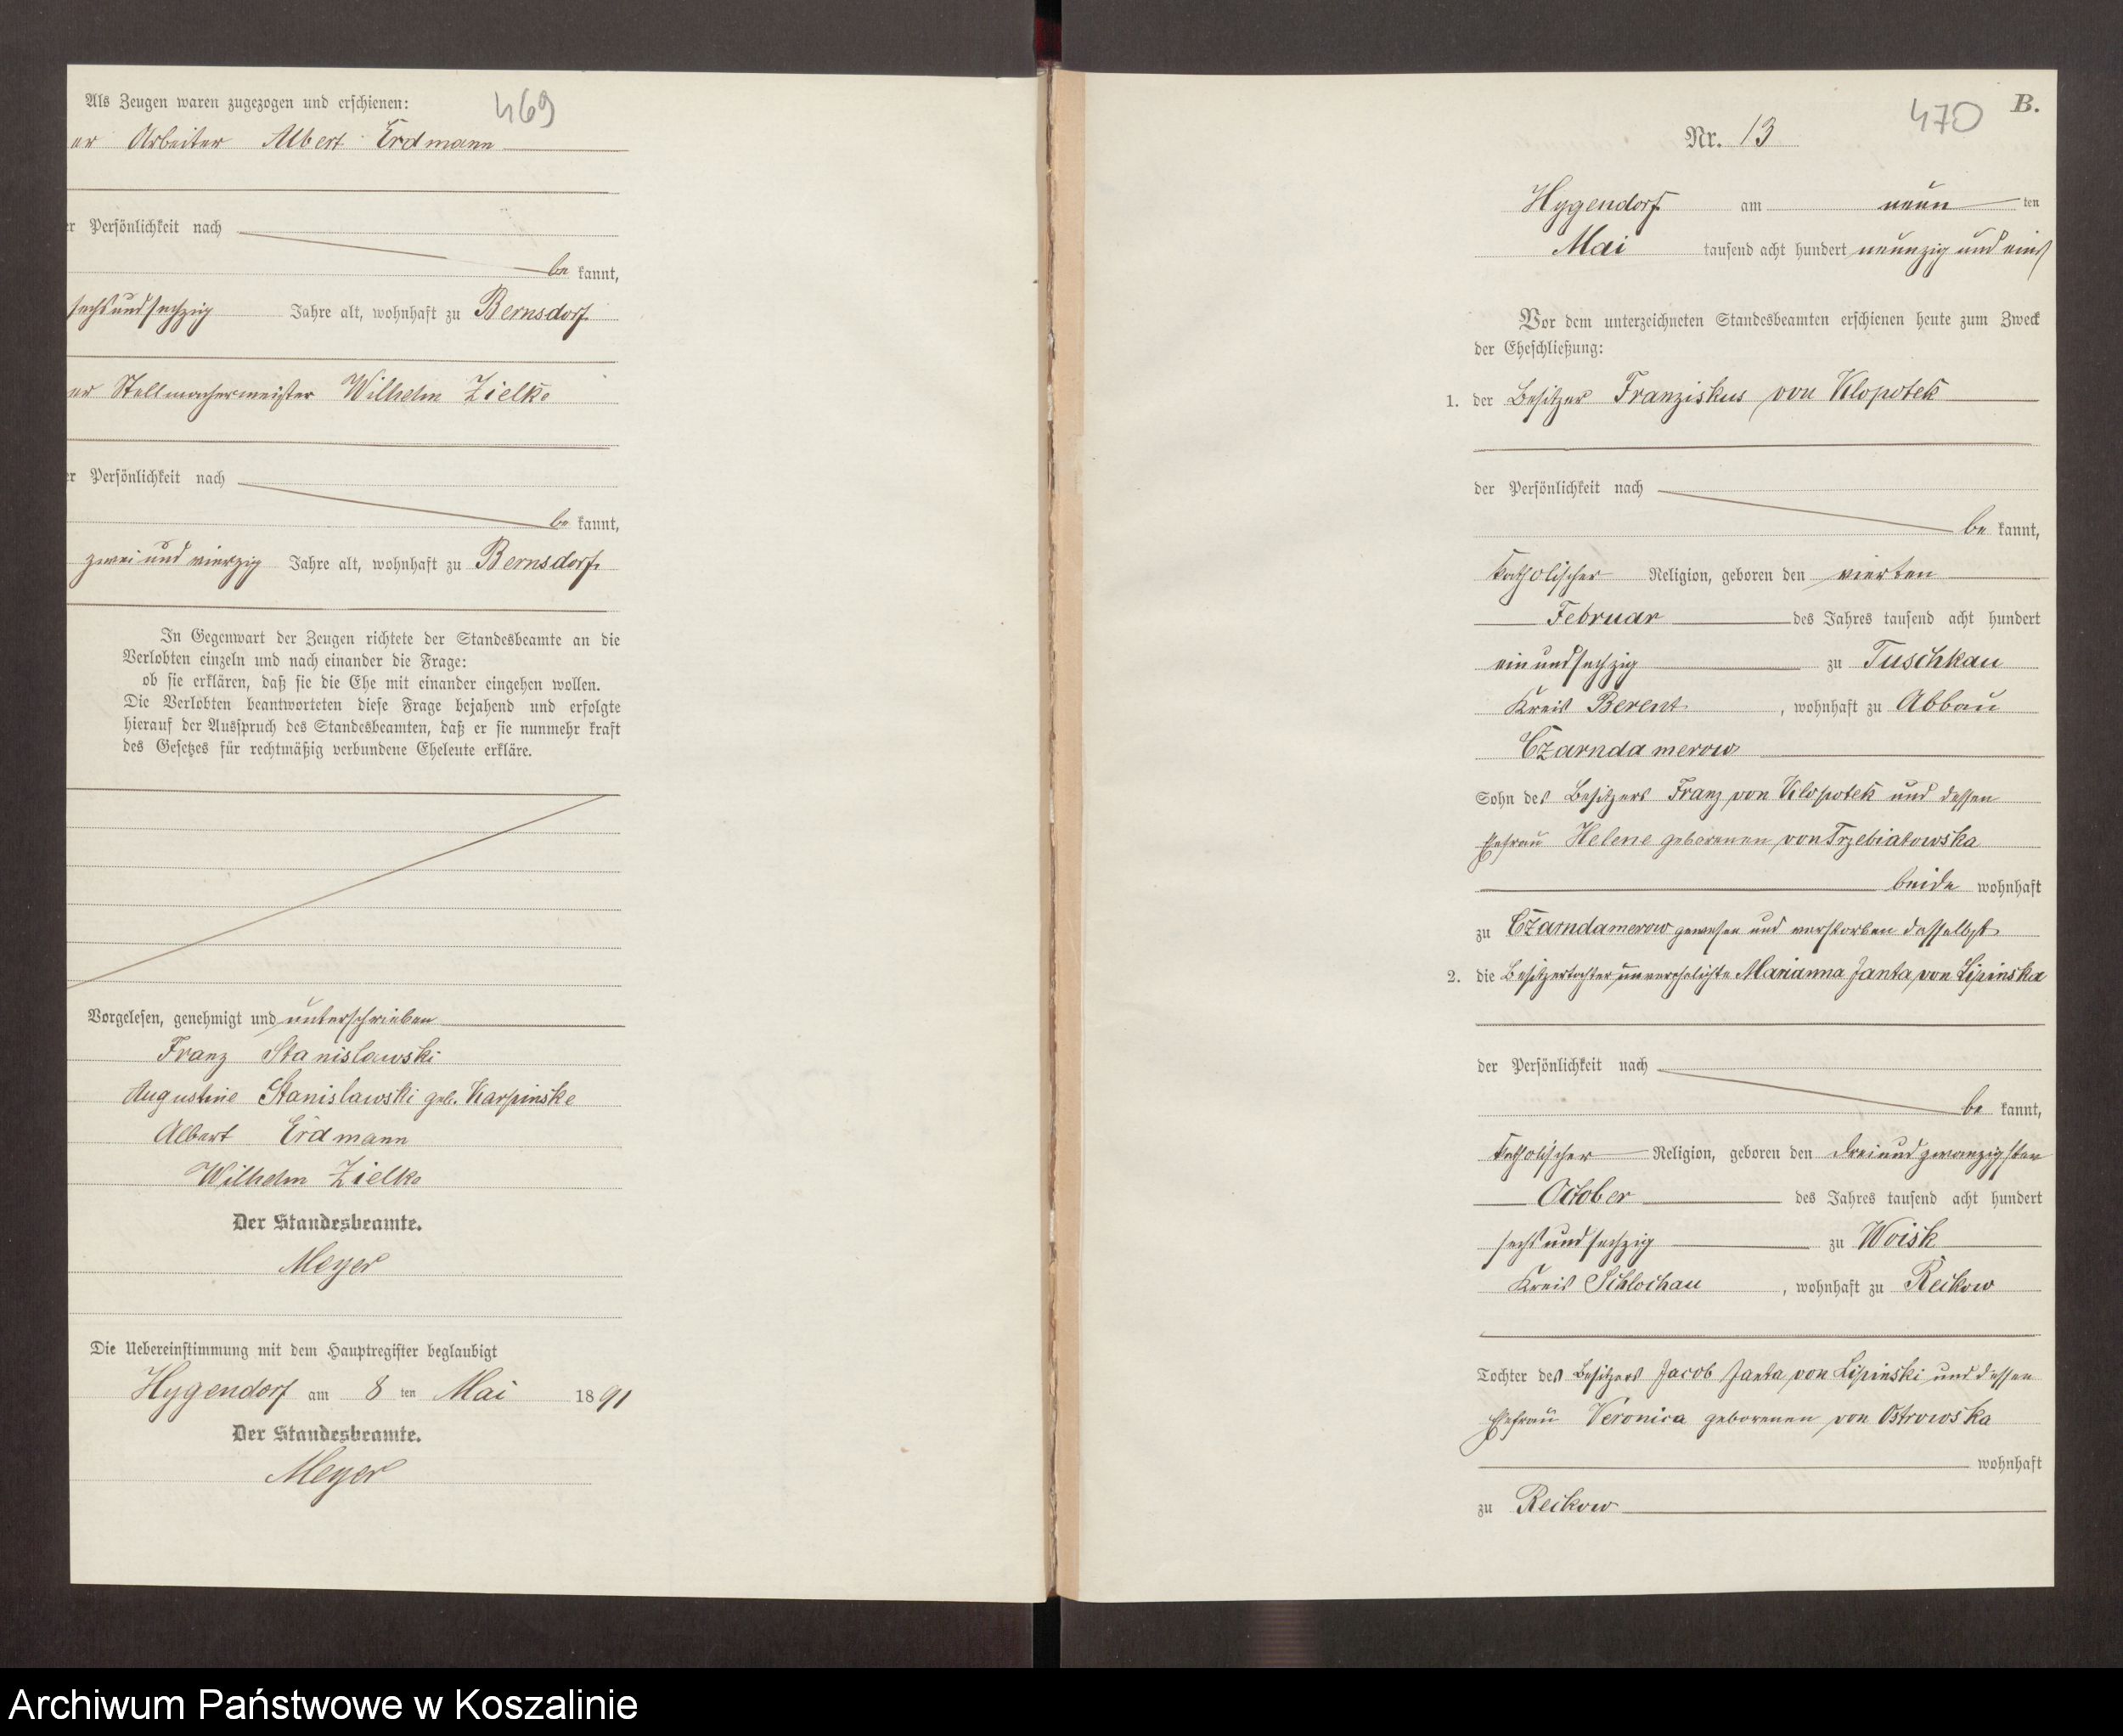 469
Als Zeugen waren zugezogen und erschienen:
er Arbeiter Albert Erdmann
er Persönlichkeit nach
be kannt,
sechsundsechzig Jahre alt, wohnhaft zu Bernsdorf
er Stellmachermeister Wilhelm Zielke
er Persönlichkeit nach
be kannt,
zwei und vierzig Jahre alt, wohnhaft zu Bernsdorf
In Gegenwart der Zeugen richtete der Standesbeamte an die
Verlobten einzeln und nach einander die Frage:
ob sie erklären, daß sie die Ehe mit einander eingehen wollen.
Die Verlobten beantworteten diese Frage bejahend und erfolgte
hierauf der Ausspruch des Standesbeamten, daß er sie nunmehr kraft
des Gesetzes für rechtmäßig verbundene Eheleute erkläre.
Vorgelesen, genehmigt und unterschrieben
Franz Stanislawski
Augustine Stanislawski geb. Karpinske
Albert Erdmann
Wilhelm Zielke
Der Standesbeamte.
Meyer
Die Uebereinstimmung mit dem Hauptregister beglaubigt
Hygendorf am 8 ten Mai 1891
Der Standesbeamte.
Meyer
470 B.
Nr. 13
Hygendorf am neun ten
Mai tausend acht hundert neunzig und eins
Vor dem unterzeichneten Standesbeamten erschienen heute zum Zweck
der Eheschließung:
1. der Besitzer Franziskus von Klopotek
der Persönlichkeit nach
be kannt,
katholischer Religion, geboren den vierten
Februar des Jahres tausend acht hundert
ein und sechzig zu Tuschkau
Kreis Berent, wohnhaft zu Abbau
Czarndamerow
Sohn des Besitzers Franz von Klopotek und dessen
Ehefrau Helene geborenen von Trzebiatowska
beide wohnhaft
zu Czarndamerow gewesen und verstorben daselbst
2. die Besitzertochter, unverehelichte Marianna Janta von Lipinska
der Persönlichkeit nach
be kannt,
katholischer Religion, geboren den dreiundzwanzigsten
October des Jahres tausend acht hundert
sechs und sechzig zu Woisk
Kreis Schlochau, wohnhaft zu Reckow
Tochter des Besitzers Jacob Janta von Lipinski und dessen
Ehefrau Veronica geborenen von Ostrowska
wohnhaft
zu Reckow
Archiwum Państwowe w Koszalinie